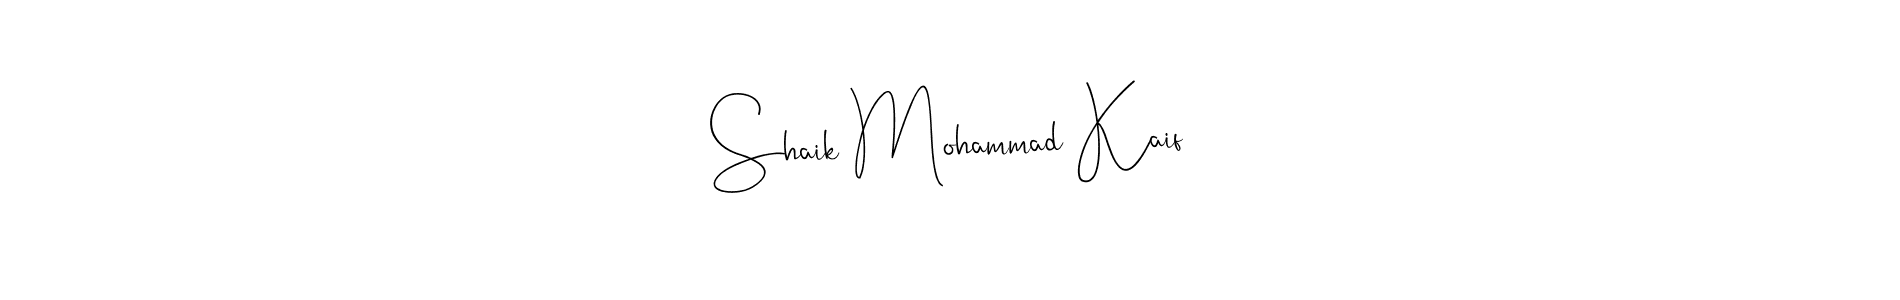 Shaik Mohammad Kaif